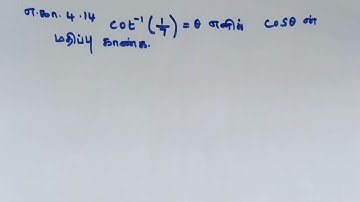 எ.கா. 4.14 cot⁻¹(1/7) = θ எனில் cosθ ன்
மதிப்பு காண்க.